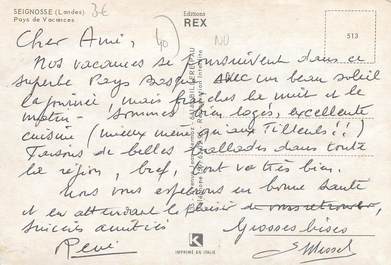 SEIGNOSSE (Landes)
Pays de Vacances
3€
Editions
REX
40
NU
513
Cher Ami,
Nos vacances se poursuivent dans ce
superbe Pays Basque avec un beau soleil
la journée, mais fraîches la nuit et le
matin - sommes bien logés, excellente
cuisine (mieux même qu'aux Tilleuls !!)
Faisons de belles ballades dans toute
la région, bref, tout va très bien.
Nous vous espérons en bonne santé
et en attendant le plaisir de vous retrouver,
amitiés
Grosses bises
René
K
IMPRIMÉ EN ITALIE